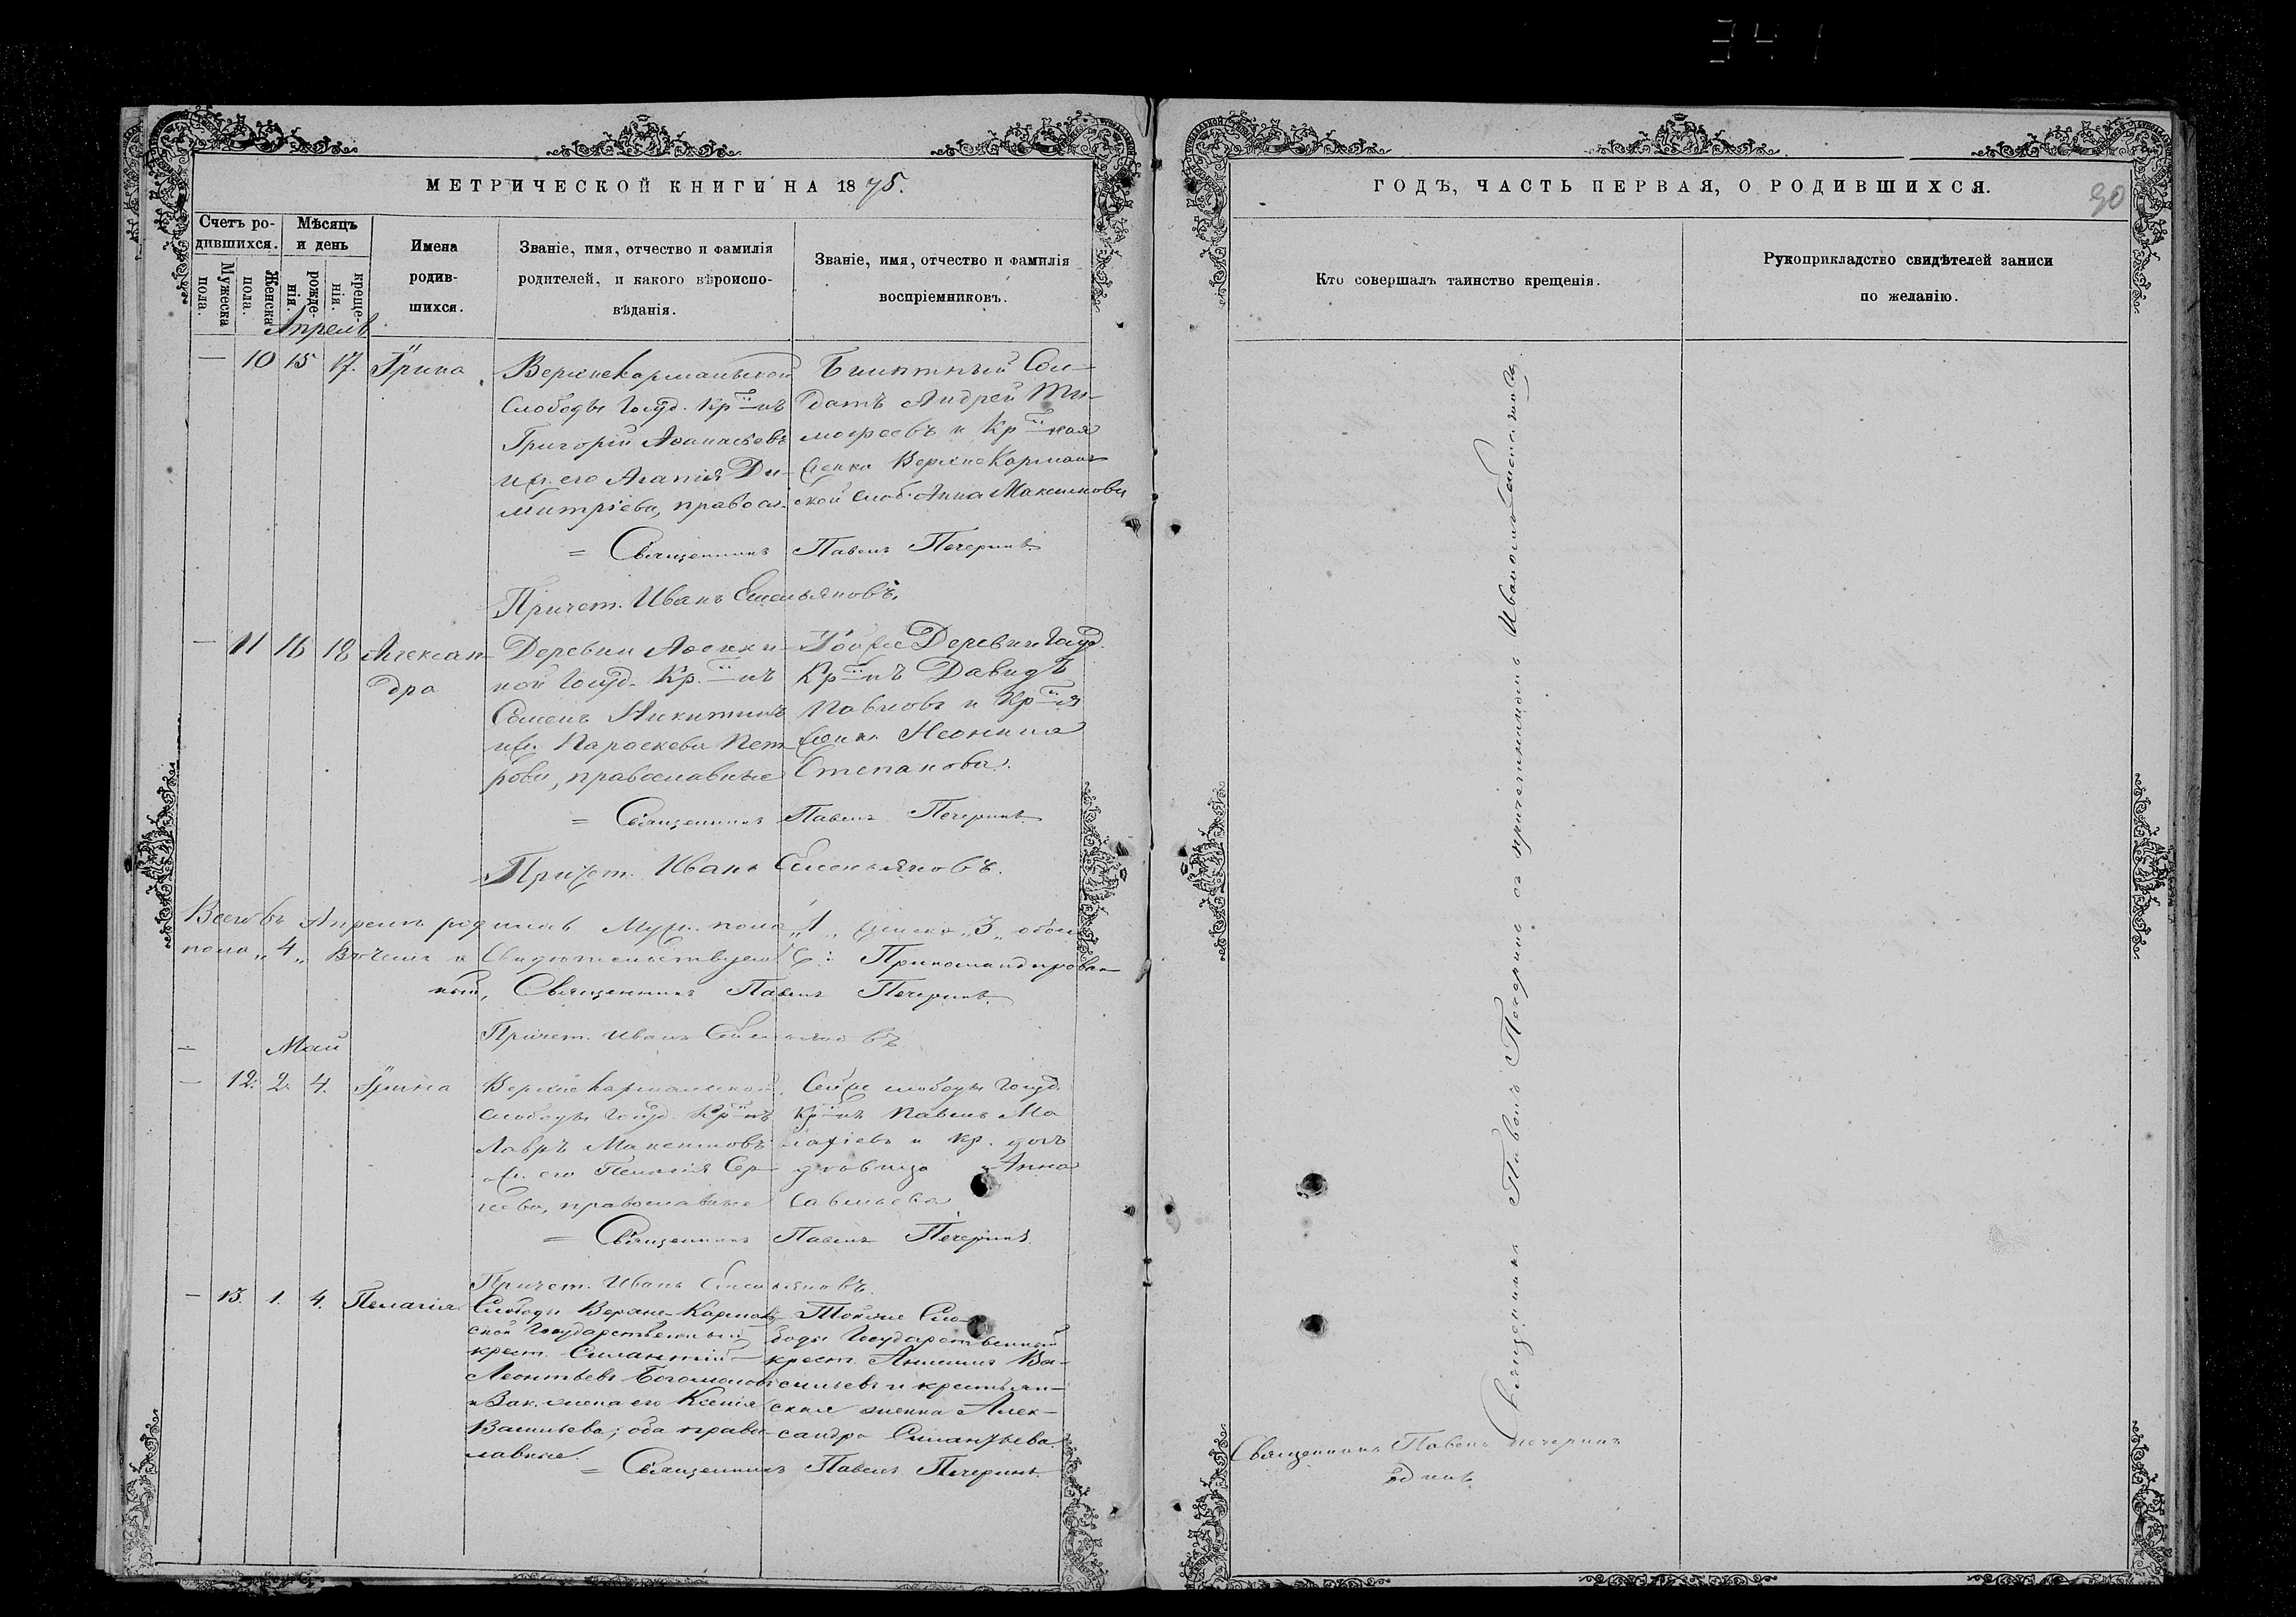 341
МЕТРИЧЕСКОЙ КНИГИ НА 1875.
Счетъ ро-
дившихся.
Мужеска
пола.
Женска
пола.
Мѣсяцъ
и день
рожде-
нія.
креще-
нія.
Имена
родив-
шихся.
Званіе, имя, отчество и фамилія
родителей, и какого вѣроиспо-
вѣданія.
Званіе, имя, отчество и фамилія
воспріемниковъ.
Апрель
— 10 15 17. Ирина
Верхнекармальской
слободы Госуд. Кр-нъ
Григорій Аѳанасіевъ
и ж. его Агапія Ди-
митріева, правосл.
Билетный Сол-
датъ Андрей Ти-
мофеевъ и Кр-ская
женка Верхнекармаль-
ской слоб. Анна Максимова
= Священникъ Павелъ Печеринъ
Причет. Иванъ Емельяновъ.
— 11 16 18 Александра
Деревни
ной Госуд. Кр-нъ
Семенъ Никитинъ
и ж. Параскева Пет-
рова, православные
Тойже Деревни Госуд.
Кр-нъ Давидъ
Павловъ и Кр-ая
женка Неонила
Степанова.
= Священникъ Павелъ Печеринъ
Причет. Иванъ Емельяновъ.
Всего въ Апрелѣ родилось Муж. пола „1„ женска „3„ обоего
пола „4„ Свидѣтельствуемъ Прикомандирован-
ный, Священникъ Павелъ Печеринъ
Причет. Иванъ Емельяновъ
Май
— 12. 2. 4. Ирина
Верхнекармальской
слободы Госуд. Кр-нъ
Лавръ Максимовъ
и ж. его Пелагія Сер-
геева, православные
Сейже слободы Госуд.
Кр-нъ Павелъ Ма-
лахіевъ и Кр. дочь
Анна
Савельева
= Священникъ Павелъ Печеринъ
Причет. Иванъ Емельяновъ.
— 13. 1. 4. Пелагія
Слободы Верхне-Кармаль-
ской Государственный
крест. Силантій
Леонтьевъ Богомоловъ
и Зак. жена его Ксенія
Васильева; оба право-
славные.
Тойже Сло-
боды Государственный
крест. Ва-
сильевъ и крестьян-
ская женка Алек-
сандра Силантьева
= Священникъ Павелъ Печеринъ
ГОДЪ, ЧАСТЬ ПЕРВАЯ, О РОДИВШИХСЯ.
90
Кто совершалъ таинство крещенія.
Рукоприкладство свидѣтелей записи
по желанію.
Священникъ Павелъ Печеринъ съ причетникомъ Иваномъ Емельяновымъ
Священникъ Павелъ Печеринъ
одинъ